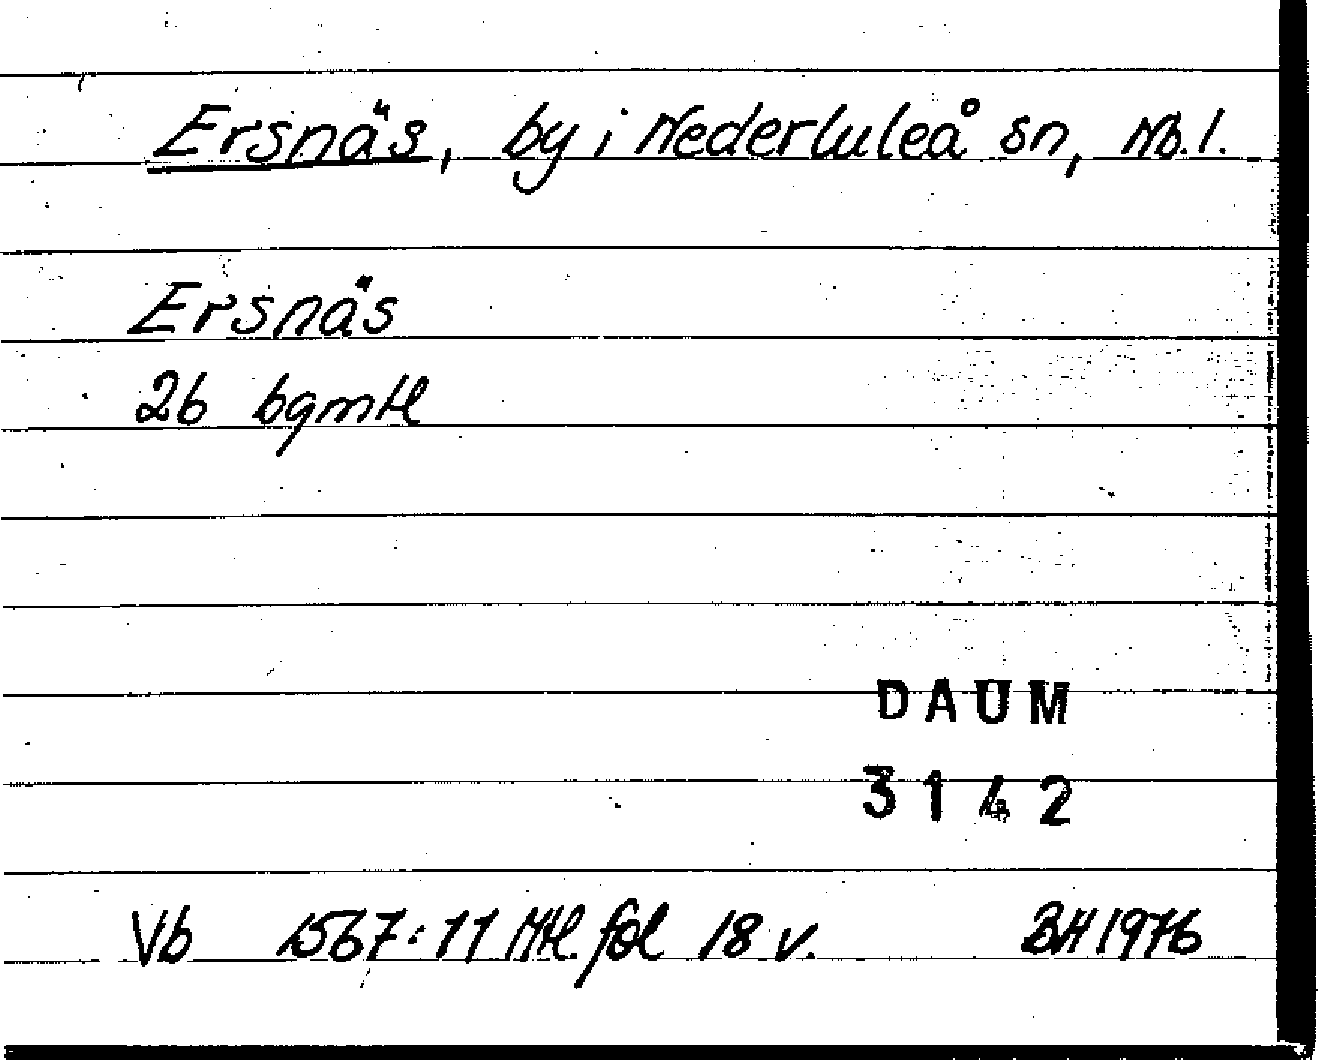 Ersnäs, by i Nederluleå sn, Nb.l.
Ersnäs
26 bgmtl
DAUM
3142
Vb 1567:11 Mtl. fol 18 v. BH 1976